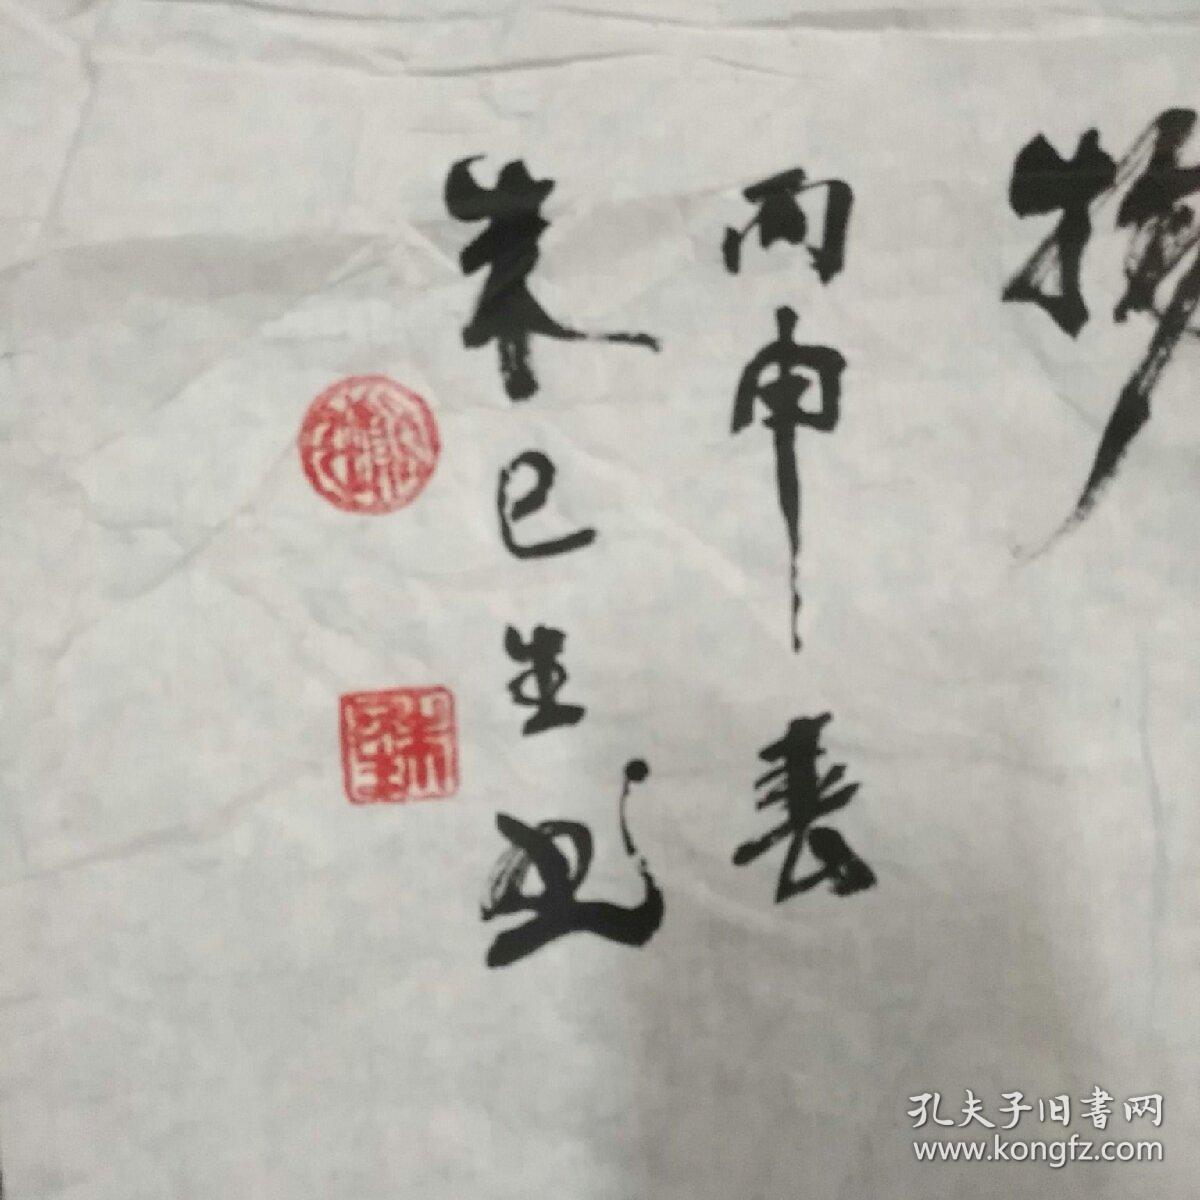 物
丙申春
朱巳生
孔夫子旧書网
www.kongfz.com